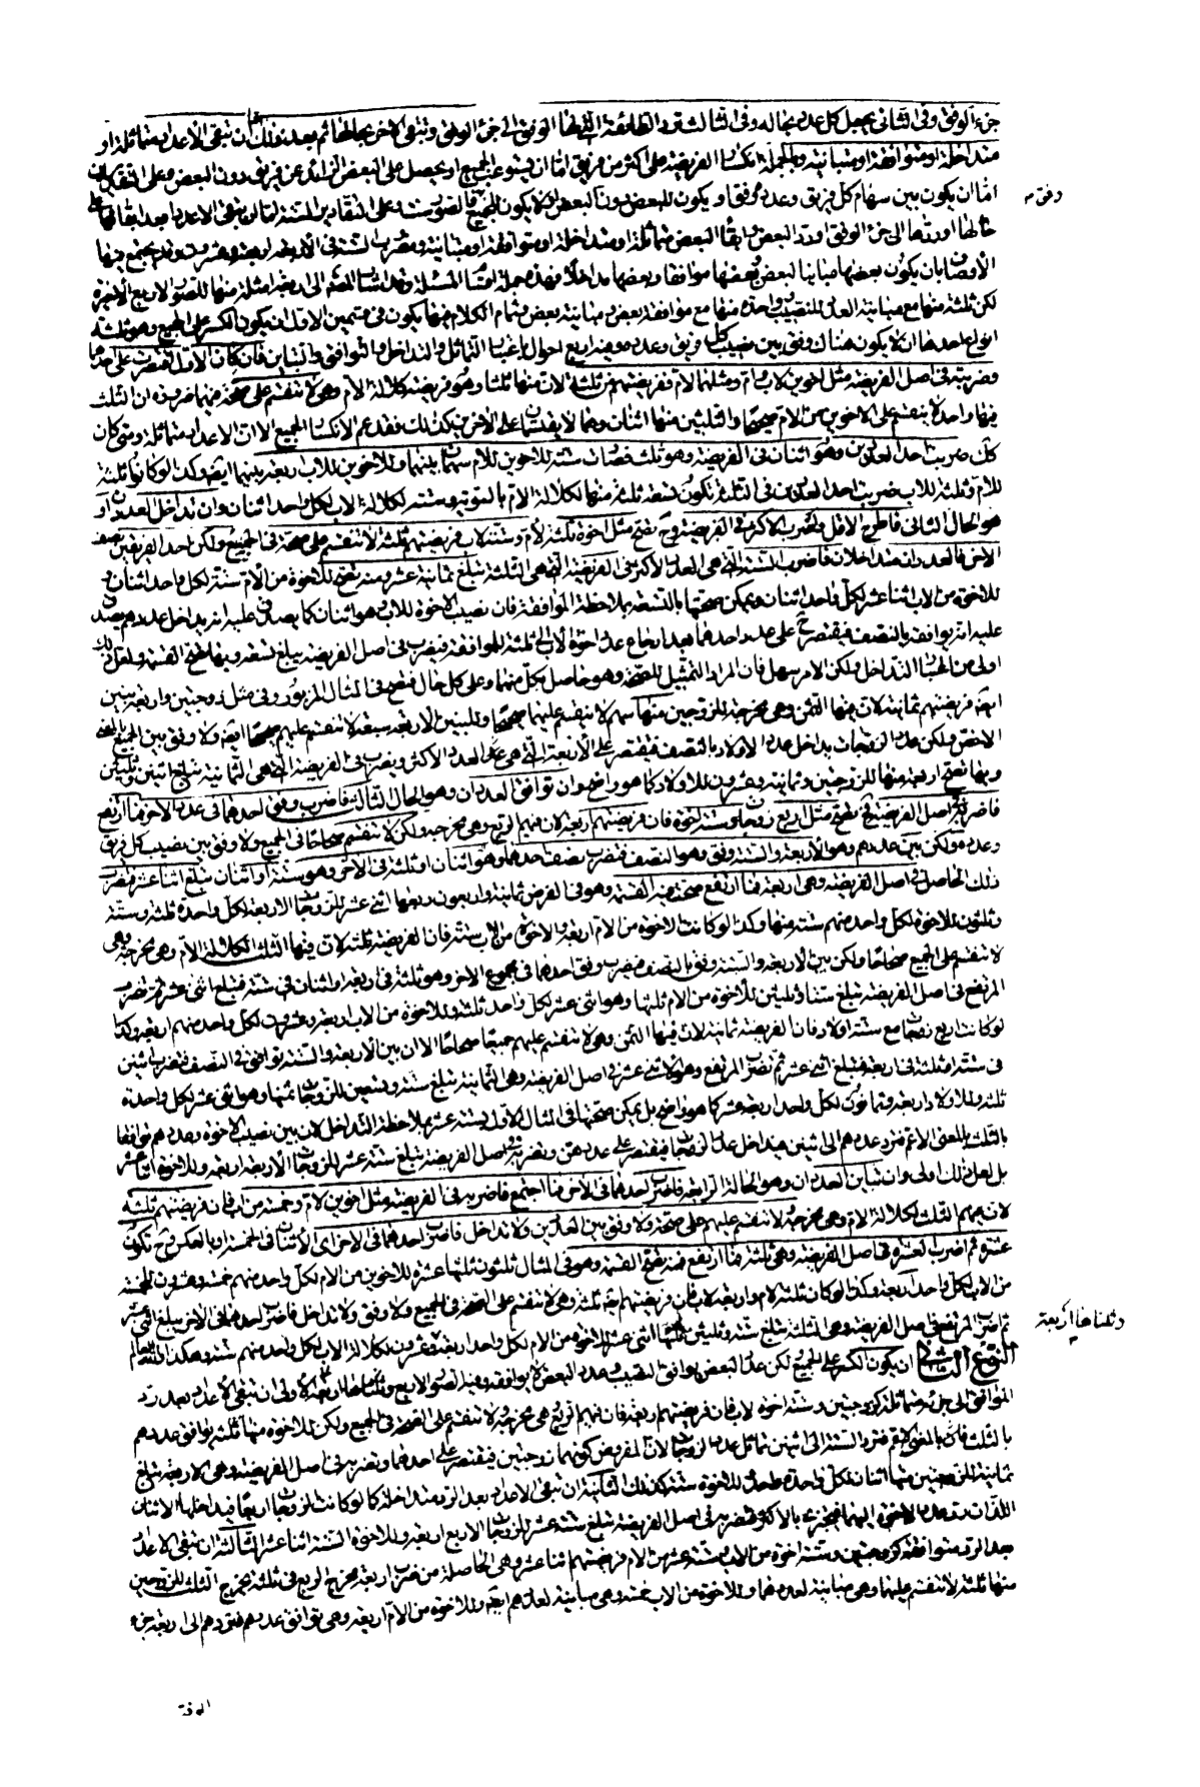 جزء الوفق وفى الثانى يجعل كل عدد بحاله وفى الثالث ترد الطائفة التى لها الوفق الى جزء الوفق وتبقى الاخرى بحالها ثم بعد ذلك اما ان تبقى الاعداد متماثلة او
متداخلة او متوافقة او متباينة وبالجملة انكسار الفريضة على اكثر من فريق اما ان يستوعب الجميع او يحصل على البعض الزائد عن فريق دون البعض وعلى التقديرين
اما ان يكون بين سهام كل فريق وعدده وفق او يكون للبعض دون البعض او لا يكون للجميع فالصور ستة وعلى التقادير الستة اما ان تبقى الاعداد بعد ابقائها على
حالها او ردها الى جزء الوفق او رد البعض وابقاء البعض متماثلة او متداخلة او متوافقة او متباينة ومضروب الستة فى الاربعة اربعة وعشرون وقد يجتمع فيها
الاوصاف بان يكون بعضها مباينا لبعض وبعضها موافقا وبعضها مداخلا فهذه جملة اقسام المسئلة وقد اشار المصنف الى اربعة امثلة منها للصور الاربع الاخيرة
لكن ثلثة منها مع مباينة العدد للنصيب وواحدة منها مع موافقة بعض ومباينة بعض وتمام الكلام فيها يكون فى قسمين الاول ان يكون الكسر على الجميع وهو ثلثة
انواع احدها ان لا يكون هناك وفق بين نصيب كل فريق وعدده وفيه اربع احوال باعتبار التماثل والتداخل والتوافق والتباين فان كان الاول اقتصرت على احدها
وضربته فى اصل الفريضة مثل اخوين لاب وام ومثلهما لام وفريضتهم من ثلثة لان منها ثلثا وهو فريضة كلالة الام وهى لا تنقسم على صحة فيهما ضرورة ان الثلث
منها واحد لا ينقسم على الاخوين من الام صحيحا والثلثين منها اثنان وهما لا ينقسمان على الاخرين كذلك فقد عم الانكسار الجميع الا ان الاعداد متماثلة ومتى كان
كل ضربت احد العددين وهو اثنان فى الفريضة وهو ثلث فصارت ستة للاخوين للام سهمان بينهما وللاخوين للاب اربعة بينهما ايضا وكذا لو كانوا ثلثة
للام وثلثة للاب ضربت احد العددين فى الثلثة تكون تسعة ثلثة منها لكلالة الام بالسوية وستة لكلالة الاب لكل واحد اثنان وان تداخل العددان او
هو الحال الثانى فاطرح الاقل واضرب الاكثر فى الفريضة وح تصح مثل اخوة ثلثة لام وستة لاب فريضتهم ثلثة لا تنقسم على صحة فى الجميع ولكن احد الفريقين نصف
الاخر فالعددان متداخلان فاضرب الستة التى هى العدد الاكثر فى الفريضة التى هى الثلثة تبلغ ثمانية عشر ومنه تصح للاخوة من الام ستة لكل واحد اثنان و
للاخوة من الاب اثنا عشر لكل واحد اثنان ويمكن صحتها بالتسعة بملاحظة الموافقة فان نصيب الاخوة للاب وهو اثنان كما يصدق عليه انه يداخل عددهم يصدق
عليه انه يوافقه بالنصف فيقتصر ح على عدد احدهما بعد ارجاع عدد اخوة الاب الى ثلثة للموافقة فيضرب فى اصل الفريضة يبلغ تسعة وبها تصح القسمة ولعل ذلك
اولى من اعتبار التداخل ولكن الامر سهل فان المراد التمثيل للصحة وهو حاصل بكل منهما وعلى كل حال فتصح فى المثال المزبور وفى مثل زوجتين واربعة بنين
ايضا فريضتهم ثمانية لان فيها الثمن وهى مخرجه للزوجتين منها سهم لا ينقسم عليهما صحيحا وللبنين الاربعة سبعة لا تنقسم عليهم صحاحا ايضا ولا وفق بين الجميع
ولكن عدد الزوجات يداخل عدد الاولاد بالنصف فيقتصر على الاربعة التى هى العدد الاكثر ويضرب فى الفريضة التى هى الثمانية تبلغ اثنين وثلثين
وبها تصح اربعة منها للزوجتين وثمانية وعشرون للاولاد كما هو واضح وان توافق العددان وهو الحال الثالث فاضرب وفق احدهما فى عدد الاخر فما ارتفع
فاضربه فى اصل الفريضة فح تصح مثل اربع زوجات وستة اخوة فان فريضتهم اربعة لان فيهم الربع وهى مخرجه ولكن لا تنقسم صحاحا فى الجميع ولا وفق بين نصيب كل فريق
وعدده ولكن بين عددهم وهو الاربعة والستة وفق وهو النصف فتضرب نصف احدهما وهو اثنان او ثلثة فى الاخر وهو ستة او اربعة تبلغ اثنا عشر فتضرب
ذلك الحاصل فى اصل الفريضة وهى اربعة فما ارتفع صحت منه القسمة وهو فى الفرض ثمانية واربعون ربعها اثنى عشر للزوجات الاربعة لكل واحدة ثلثة وستة
وثلثون للاخوة لكل واحد منهم ستة منها وكذا لو كانت الاخوة من الام اربعة والاخوة من الاب ستة فان الفريضة ثلثة لان فيها الثلث لكلالة الام وهى مخرجه وهى
لا تنقسم على الجميع صحاحا ولكن بين الاربعة والستة وفق بالنصف فيضرب وفق احدهما فى مجموع الاخر وهو ثلثة فى اربعة او اثنان فى ستة فتبلغ اثنى عشر ثم تضرب
المرتفع فى اصل الفريضة تبلغ ستة وثلثين للاخوة من الام ثلثها وهو اثنى عشر لكل واحد ثلثة وللاخوة من الاب اربعة وعشرون لكل واحد منهم اربعة وكذا
لو كانت اربع زوجات مع ستة اولاد فان الفريضة ثمانية لان فيها الثمن وهى لا تنقسم عليهم جميعا صحاحا الا ان بين الاربعة والستة توافق فى النصف فتضرب اثنين
فى ستة او ثلثة فى اربعة فتبلغ اثنى عشر ثم تضرب المرتفع وهو الاثنى عشر فى اصل الفريضة وهى الثمانية تبلغ ستة وتسعين للزوجات ثمنها وهو اثنى عشر لكل واحدة
ثلثة وللاولاد اربعة وثمانون لكل واحد اربعة عشر كما هو واضح بل يمكن صحتها فى المثال الاول بستة عشر بملاحظة التداخل لان بين نصيب الاخوة وعددهم توافقا
بالثلث بالمعنى الاعم فترد عددهم الى اثنين فيداخل عدد الزوجات فيقتصر على عددهن وتضربه فى اصل الفريضة تبلغ ستة عشر للزوجات الاربعة اربعة وللاخوة اثنا عشر
بل لعل ذلك اولى وان تباين العددان وهو الحالة الرابعة فاضرب احدهما فى الاخر فما اجتمع فاضربه فى الفريضة مثل اخوين لام وخمسة من اب فان فريضتهم ثلثة
لان فيهم الثلث لكلالة الام وهى مخرجه لا تنقسم عليهم على صحة ولا وفق بين العددين ولا تداخل فاضرب احدهما فى الاخر اى الاثنان فى الخمسة او بالعكس فح تكون
عشرة ثم اضرب العشرة فى اصل الفريضة وهى ثلثة فما ارتفع فمنه تصح القسمة وهو فى المثال ثلثون ثلثها عشرة للاخوين من الام لكل واحد منهم خمسة وعشرون للخمسة
من الاب لكل واحد اربعة وكذا لو كان ثلثة لام واربعة لاب فان فريضتهم ايضا ثلثة وهى لا تنقسم على الصحة فى الجميع ولا وفق ولا تداخل فاضرب احدهما فى الاخر يبلغ اثنى عشر
ثم اضرب المرتفع فى اصل الفريضة وهى الثلثة تبلغ ستة وثلثين ثلثها اثنى عشر للاخوة من الام لكل واحد اربعة وعشرون لكلالة الاب لكل واحد منهم ستة وهكذا الله العالم
النوع الثانى ان يكون الكسر على الجميع لكن عدد البعض يوافق النصيب وعدد البعض لا يوافقه وفيه الصور الاربع ومثلناها اربعة الاولى ان تبقى الاعداد بعد رد
الموافق الى جزئه متماثلة كزوجتين وستة اخوة لاب فان فريضتهم اربعة فان فيهم الربع هى مخرجه ولا تنقسم على الصحة فى الجميع ولكن للاخوة منها ثلثة يوافق عددهم
بالثلث فان بالمعنى الاعم فترد الستة الى اثنين تماثل عدد الزوجات لان المفروض كونهما زوجتين فيقتصر على احدهما وتضربه فى اصل الفريضة وهى الاربعة تبلغ
ثمانية للزوجتين منها اثنان لكل واحدة واحد للاخوة ستة كذلك الثانية ان تبقى الاعداد بعد الرد متداخلة كما لو كانت الزوجات اربعا فيداخلها الاثنان
اللذان رد عدد الاخوة اليهما فتجتزء بالاكثر فتضربه فى اصل الفريضة تبلغ ستة عشر للزوجات الاربع اربعة وللاخوة الستة اثنا عشر الثالثة ان تبقى الاعداد
بعد الرد متوافقة كزوجتين وستة اخوة من الاب وستة عشر من الام فريضتهم اثنا عشر وهى الحاصلة من ضرب اربعة مخرج الربع فى ثلثة مخرج الثلث للزوجتين
منها ثلثة لا تنقسم عليهما وهى مباينة لعددهما وللاخوة من الاب خمسة وهى مباينة لعددهم ايضا وللاخوة من الام اربعة وهى توافق عددهم فتردهم الى اربعة جزء
وفق
ومثلناها اربعة
الوفق